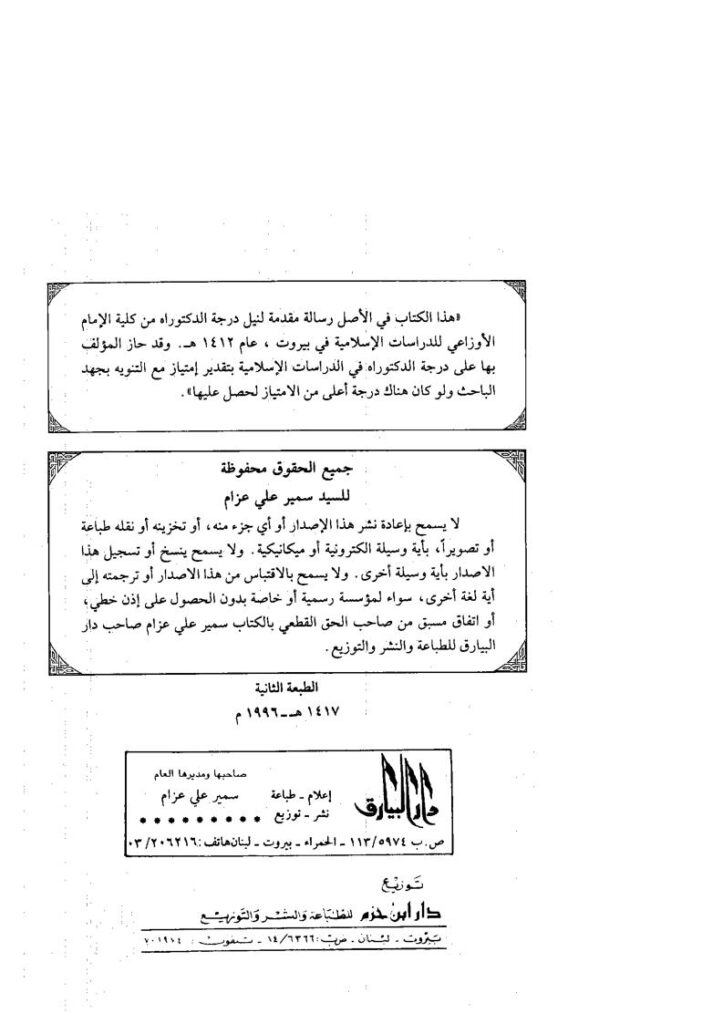 «هذا الكتاب في الأصل رسالة مقدمة لنيل درجة الدكتوراه من كلية الإمام
الأوزاعي للدراسات الإسلامية في بيروت ، عام ١٤١٢ هـ. وقد حاز المؤلف
بها على درجة الدكتوراه في الدراسات الإسلامية بتقدير إمتياز مع التنويه بجهد
الباحث ولو كان هناك درجة أعلى من الامتياز لحصل عليها».
جميع الحقوق محفوظة
للسيد سمير علي عزام
لا يسمح بإعادة نشر هذا الإصدار أو أي جزء منه، أو تخزينه أو نقله طباعة
أو تصويراً، بأية وسيلة الكترونية أو ميكانيكية. ولا يسمح ينسخ أو تسجيل هذا
الاصدار بأية وسيلة أخرى. ولا يسمح بالاقتباس من هذا الاصدار أو ترجمته إلى
أية لغة أخرى، سواء لمؤسسة رسمية أو خاصة بدون الحصول على إذن خطي،
أو اتفاق مسبق من صاحب الحق القطعي بالكتاب سمير علي عزام صاحب دار
البيارق للطباعة والنشر والتوزيع.
الطبعة الثانية
١٤١٧ هـ - ١٩٩٦ م
دار البيارق
إعلام - طباعة
نشر - توزيع
صاحبها ومديرها العام
سمير علي عزام
ص.ب ١١٣/٥٩٧٤ - الحمراء - بيروت - لبنان هاتف: ٠٣/٢٠٦٢١٦
توزيع
دار ابن حزم للطباعة والنشر والتوزيع
بيروت - لبنان - ص.ب: ١٤/٦٣٦٦ - تلفون: ٧٠١٩٧٤